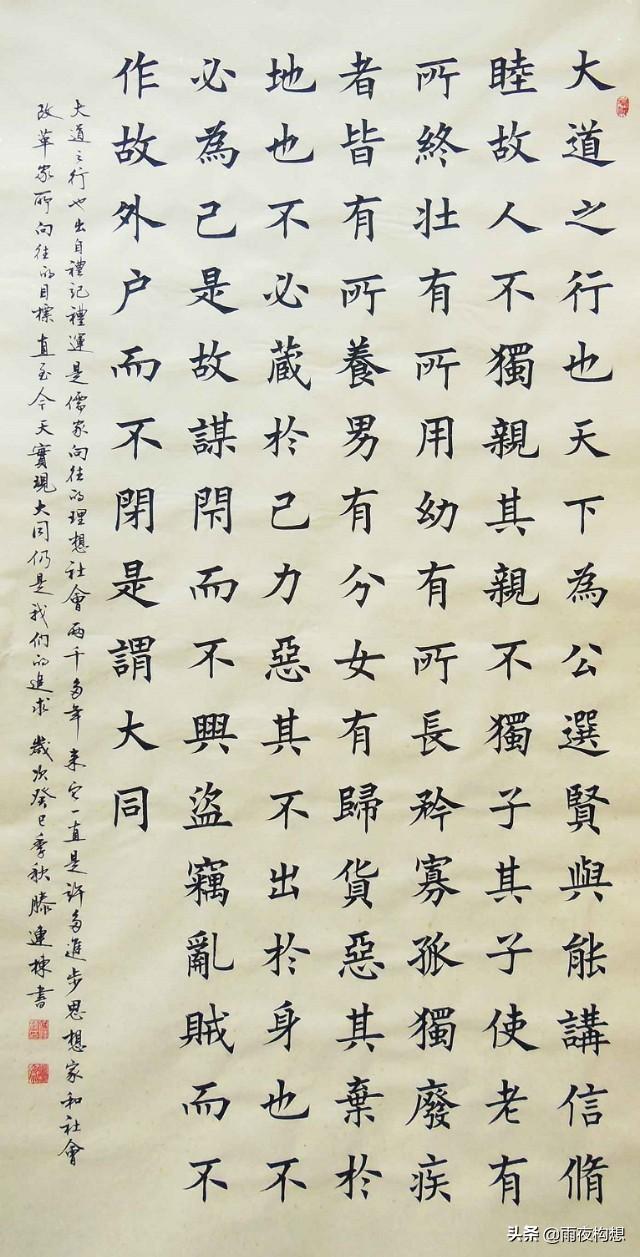 大道之行也天下為公選賢與能講信脩
睦故人不獨親其親不獨子其子使老有
所終壯有所用幼有所長矜寡孤獨廢疾
者皆有所養男有分女有歸貨惡其棄於
地也不必藏於己力惡其不出於身也不
必為己是故謀閉而不興盜竊亂賊而不
作故外户而不閉是謂大同
大道之行也出自禮記禮運是儒家向往的理想社會兩千多年来它一直是許多進步思想家和社會
改革家所向往的目標直至今天實現大同仍是我們的追求 歲次癸巳季秋滕連棟書
头条 @雨夜构想